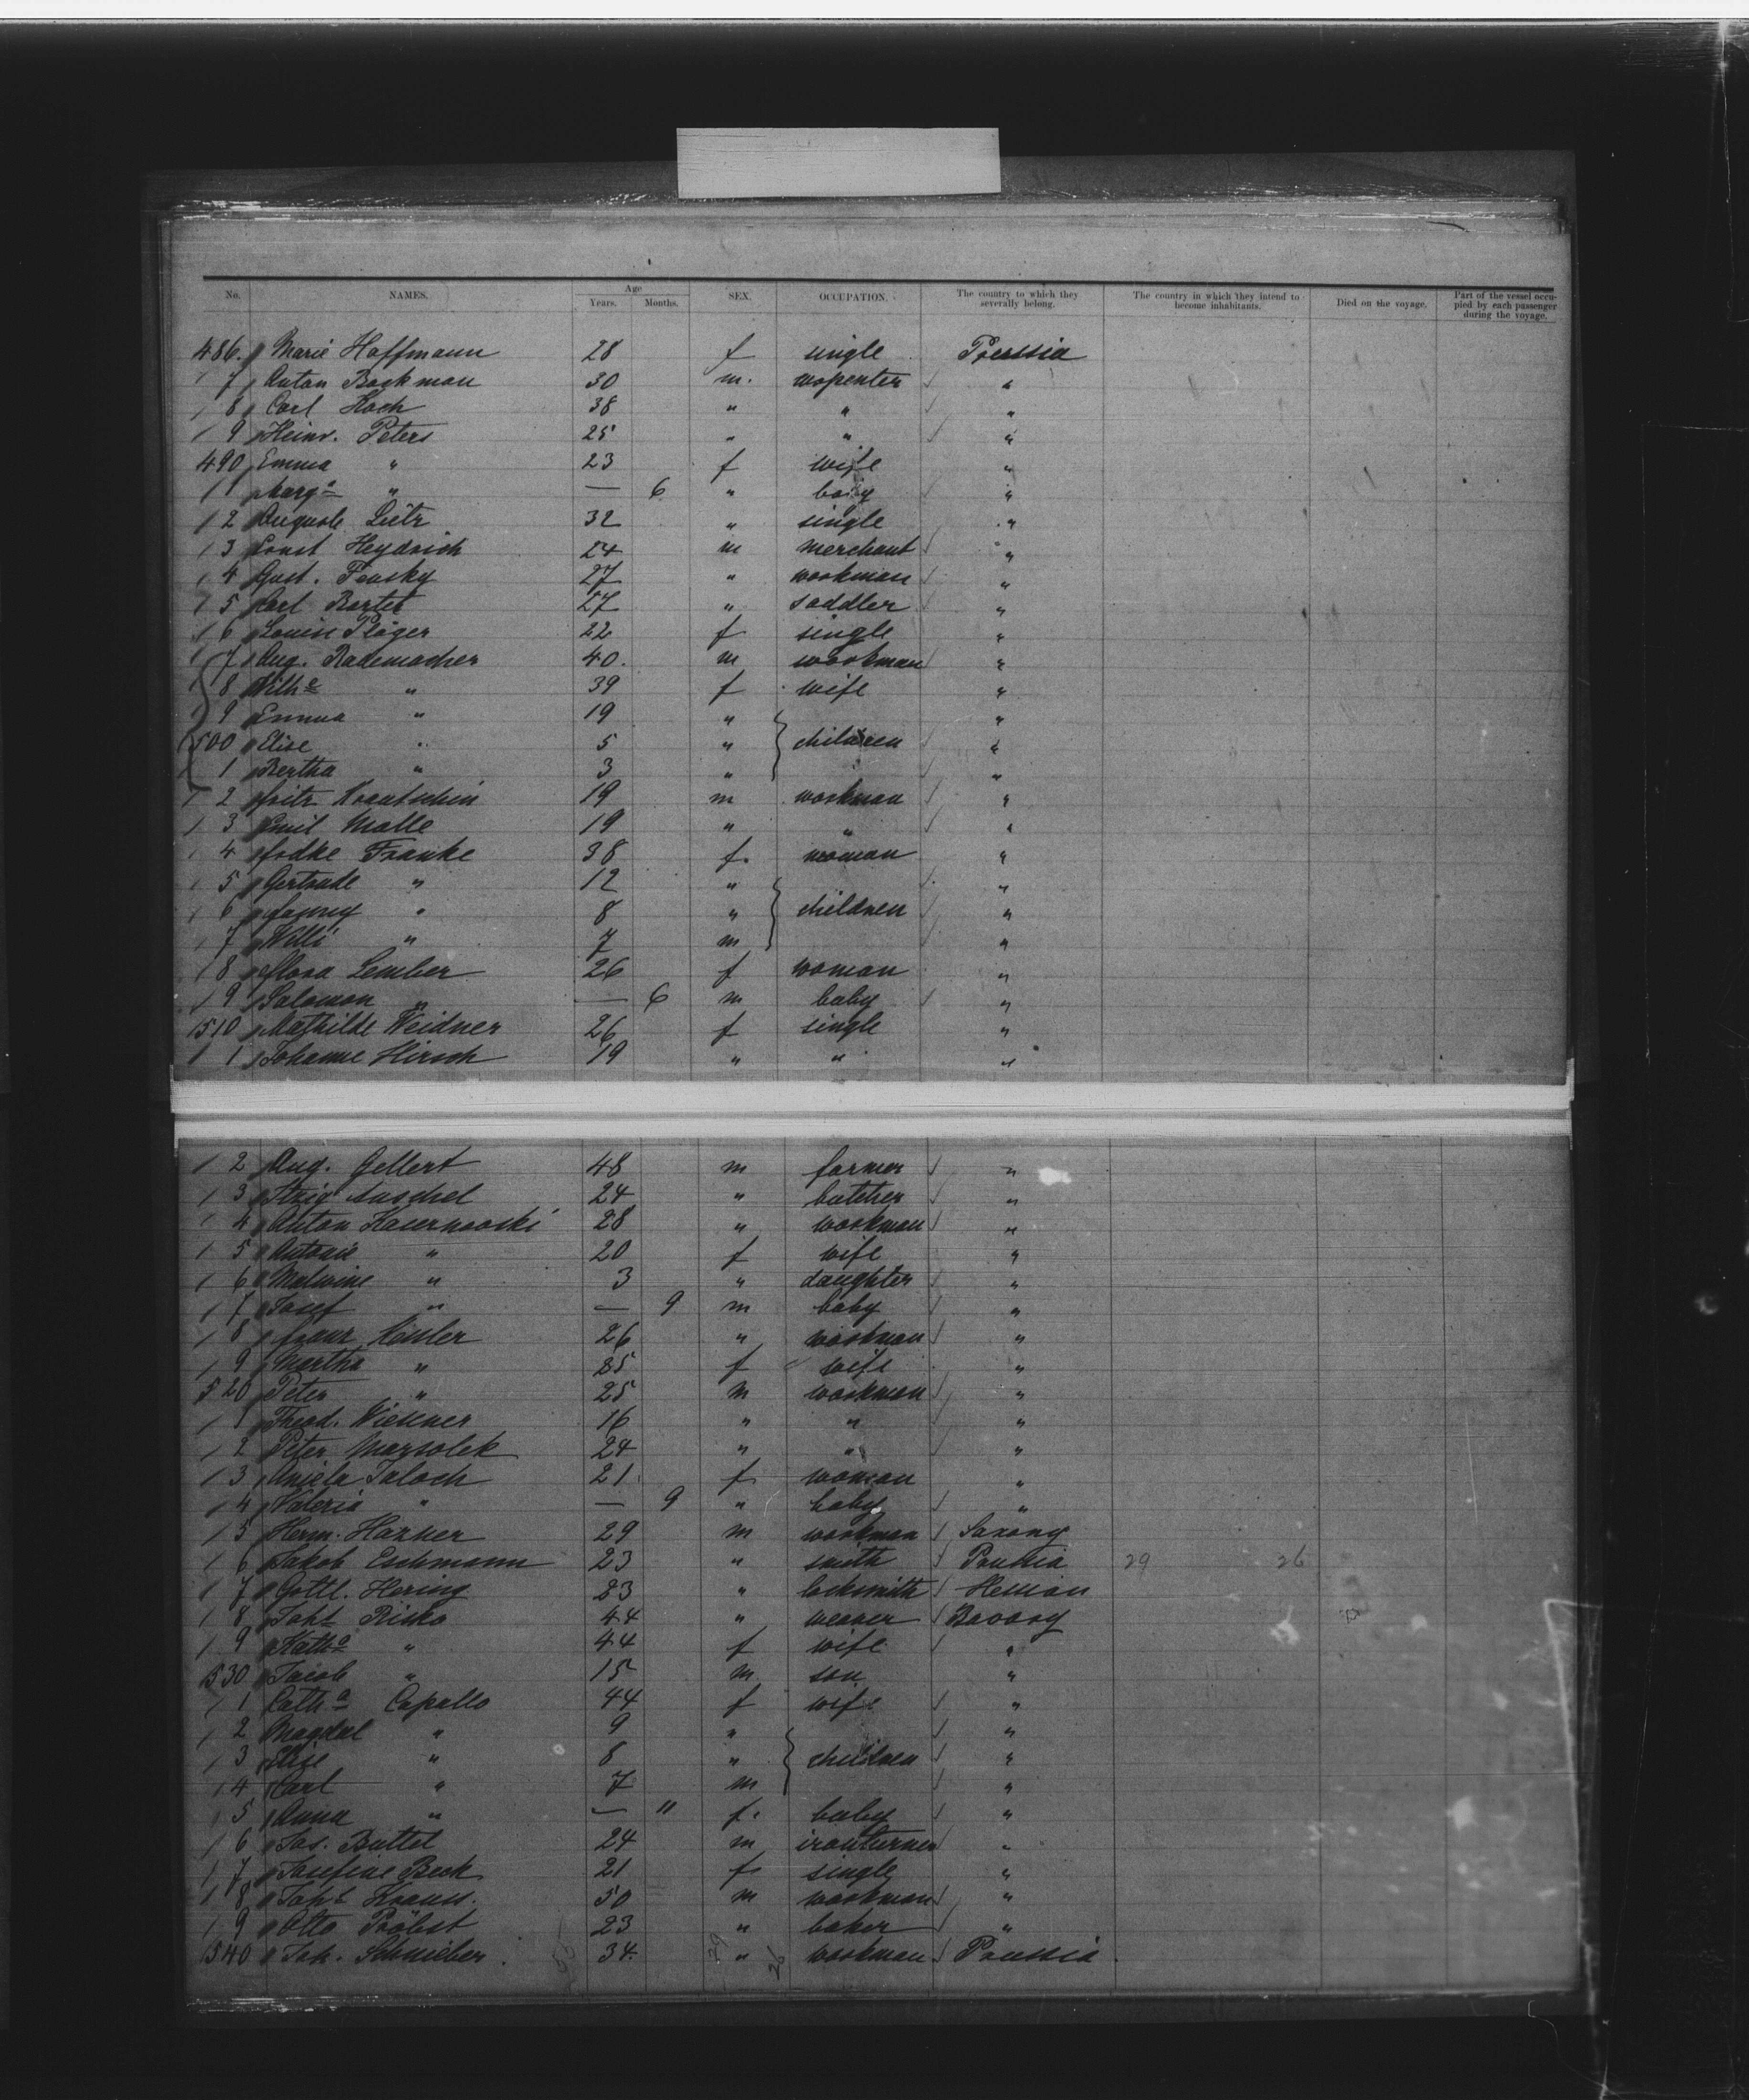 No. NAMES. Age Years. Months. SEX. OCCUPATION. The country to which they severally belong. The country in which they intend to become inhabitants. Died on the voyage. Part of the vessel occupied by each passenger during the voyage.
486. Marie Hoffmann 28 f single Prussia
7 Anton Backman 30 m. "
8 Carl Hoch 38 " " "
9 Heinr. Peters 25 " " "
490 Emma " 23 f wife "
1 Marga " — 6 " baby "
2 Auguste Lietz 32 " single "
3 Ernst Heydrich 24 m merchant "
4 Gust. Fensky 27 " workman "
5 Carl Bartel 27 " saddler "
6 Louise Pläger 22 f single "
7 Aug. Rademacher 40. m workman "
8 Wilhe " 39 f wife "
9 Emma " 19 " "
500 Elise " 5 " children "
1 Bertha " 3 " "
2 Fritz 19 m workman "
3 Emil Malle 19 " " "
4 Franke 38 f. woman "
5 Gertrude " 12 " "
6 Fanny " 8 " children "
7 Willi " 7 m "
8 Flora Lember 26 f woman "
9 Salomon " — 6 m baby "
510 Mathilde Weidner 26 f single "
1 Johanne Hirsch 19 " " "
2 Aug. Gellert 48 m farmer "
3 Auschel 24 " butcher "
4 Anton 28 " workman "
5 Antonie " 20 f wife "
6 Malwine " 3 " daughter "
7 Josef " — 9 m baby "
8 Franz 26 " workman "
9 Martha " 25 f wife "
520 Peter " 25 m workman "
1 Theod. Wiesner 16 " " "
2 Peter Marsolek 24 " " "
3 Aniela Taloch 21 f woman "
4 Valeria " — 9 " baby "
5 Herm. Haxner 29 m workman Saxony
6 Jakob Eschmann 23 " smith Prussia 29 26
7 Gottl. Hering 23 " locksmith Hessian
8 Joht Risko 44 " weaver Bavary
9 Katha " 44 f wife "
530 Jacob " 15 m son "
1 Catha Capallo 44 f wife "
2 Magdal " 9 " "
3 Elise " 8 " children "
4 Carl " 7 m "
5 Anna " — 11 f. baby "
6 Jos. Buttel 24 m ironturner "
7 Josefine Beck 21 f single "
8 Joht Krauss. 50 m workman "
9 Otto Pröbst 23 " baker "
540 Joh. Schnieber 34. " workman Prussia
29 26